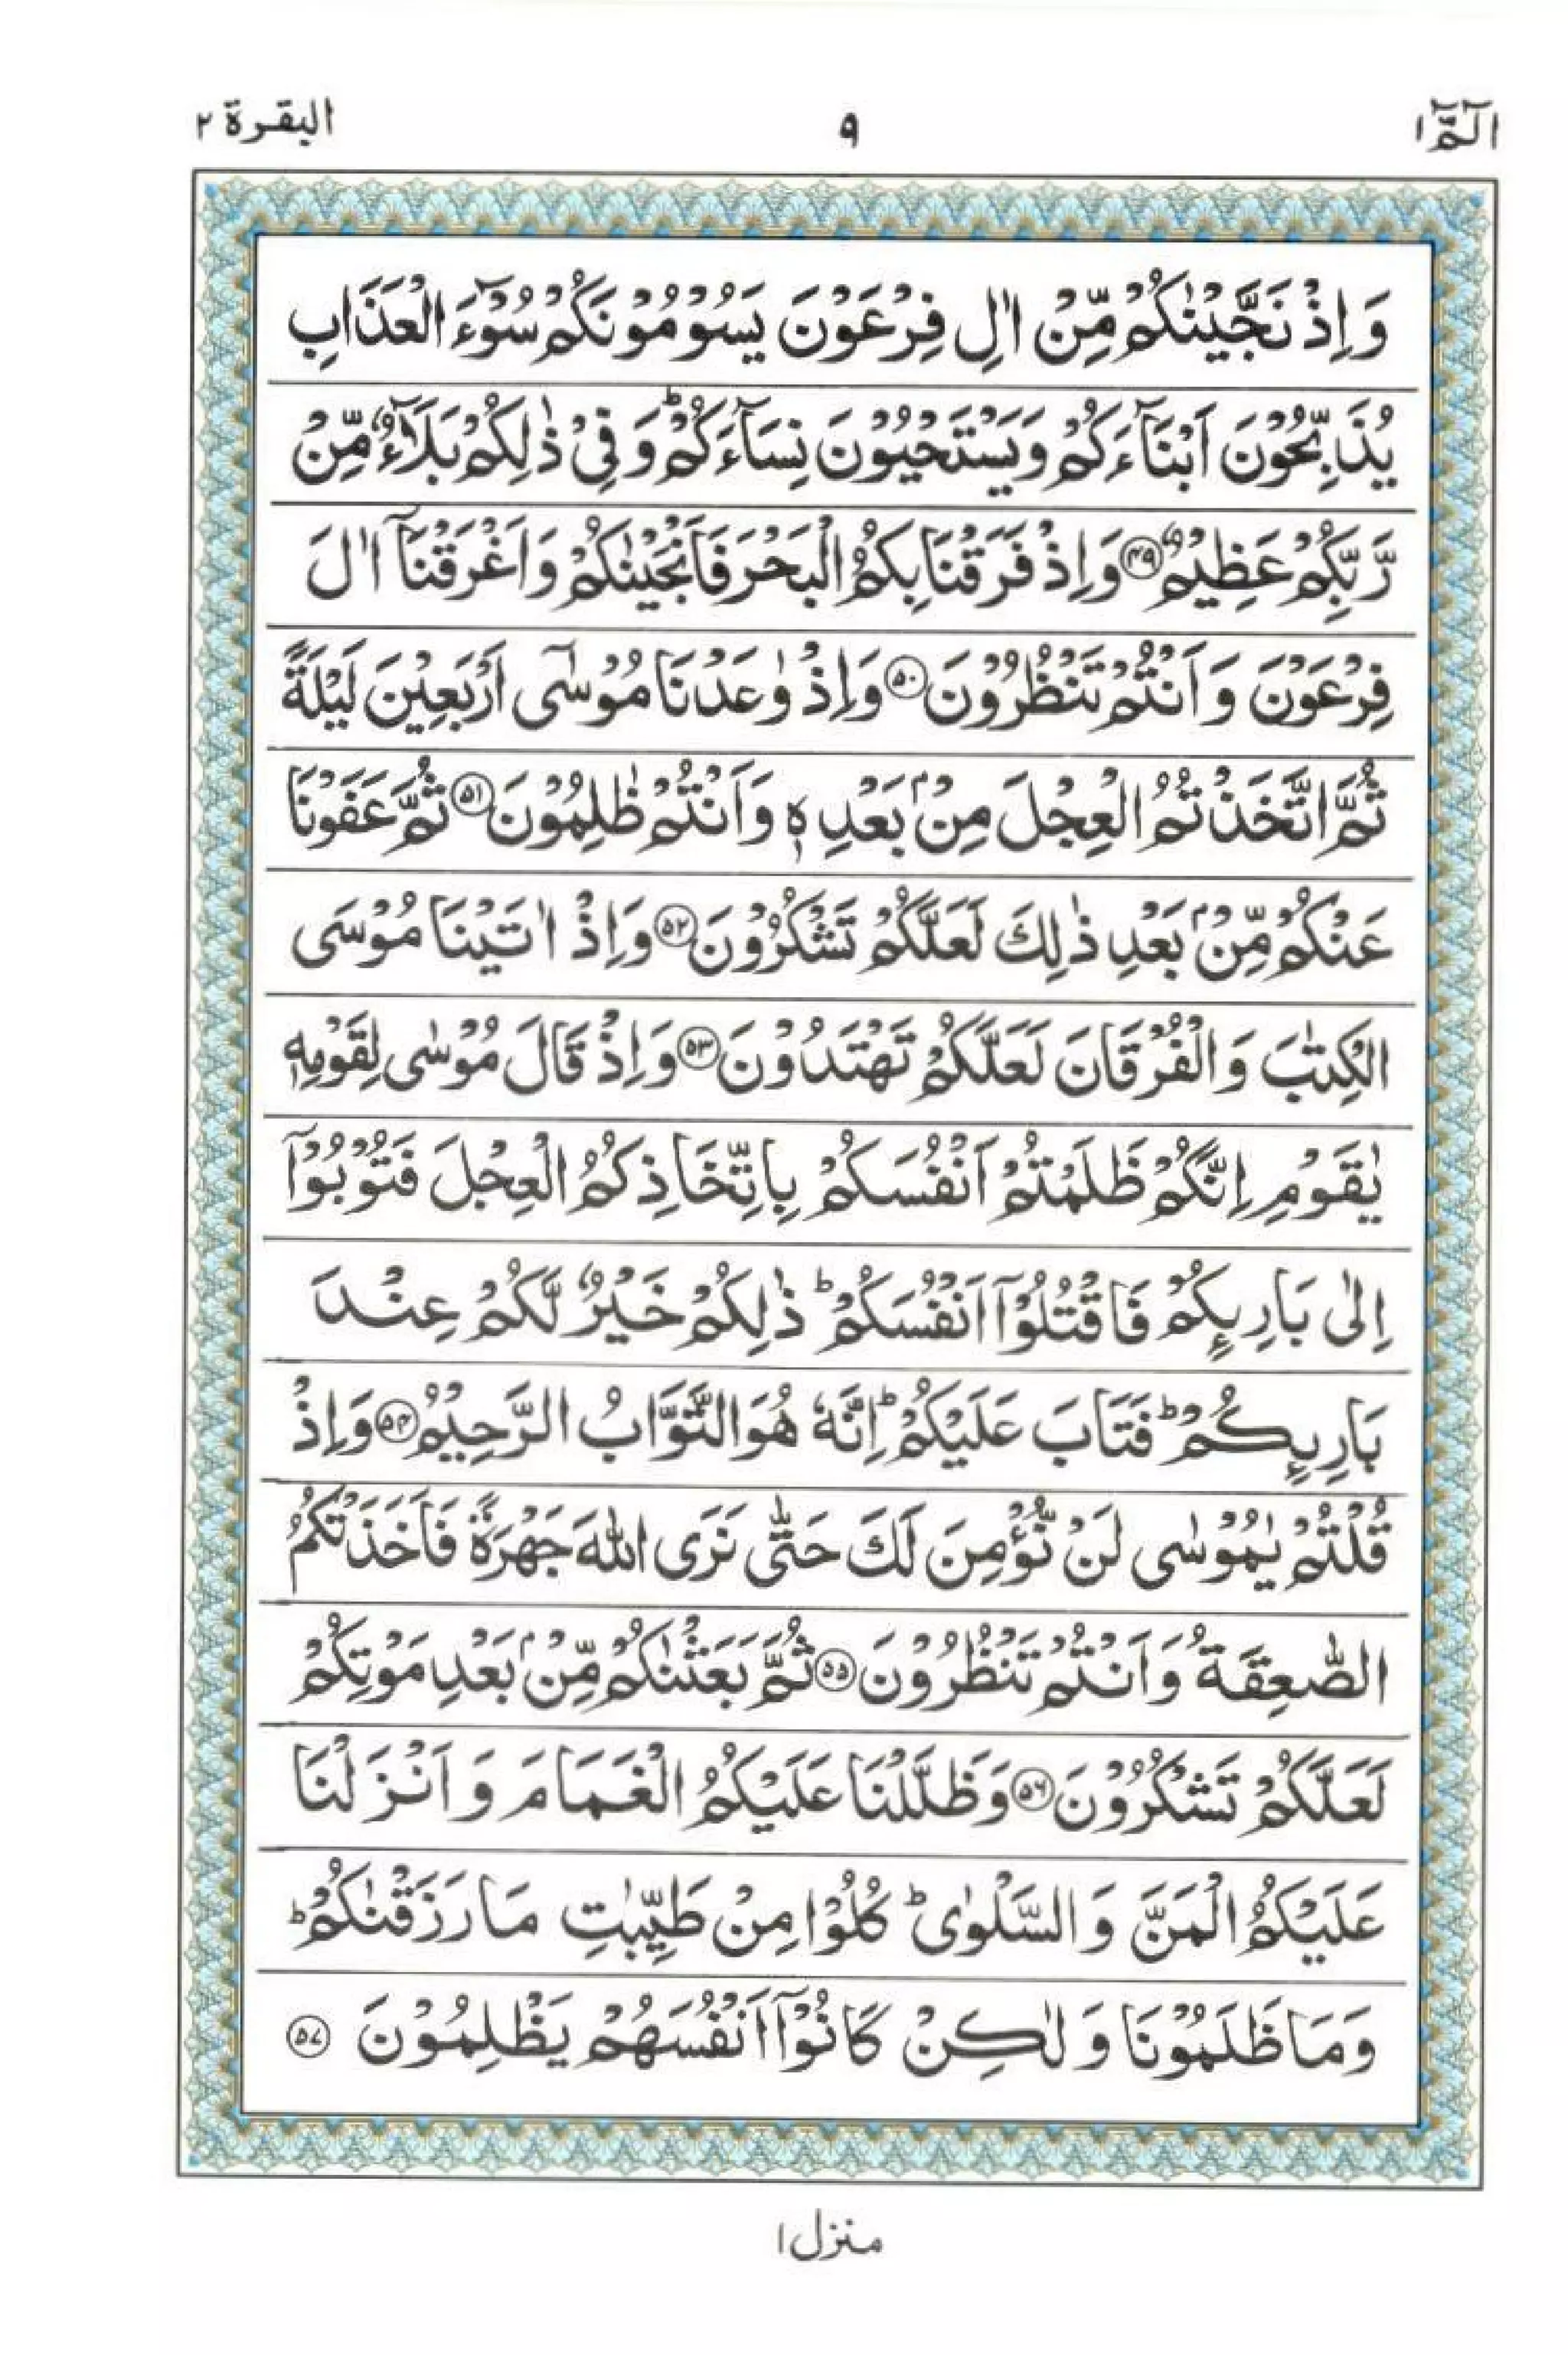 الٓمّٓ ١
٩
البقرة ٢
وَاِذْ نَجَّيْنٰكُمْ مِّنْ اٰلِ فِرْعَوْنَ يَسُوْمُوْنَكُمْ سُوْٓءَ الْعَذَابِ
يُذَبِّحُوْنَ اَبْنَآءَكُمْ وَيَسْتَحْيُوْنَ نِسَآءَكُمْ ؕ وَفِيْ ذٰلِكُمْ بَلَآءٌ مِّنْ
رَّبِّكُمْ عَظِيْمٌ ﴿۴۹﴾ وَاِذْ فَرَقْنَا بِكُمُ الْبَحْرَ فَاَنْجَيْنٰكُمْ وَاَغْرَقْنَآ اٰلَ
فِرْعَوْنَ وَاَنْتُمْ تَنْظُرُوْنَ ﴿۵۰﴾ وَاِذْ وٰعَدْنَا مُوْسٰٓى اَرْبَعِيْنَ لَيْلَةً
ثُمَّ اتَّخَذْتُمُ الْعِجْلَ مِنْۢ بَعْدِهٖ وَاَنْتُمْ ظٰلِمُوْنَ ﴿۵۱﴾ ثُمَّ عَفَوْنَا
عَنْكُمْ مِّنْۢ بَعْدِ ذٰلِكَ لَعَلَّكُمْ تَشْكُرُوْنَ ﴿۵۲﴾ وَاِذْ اٰتَيْنَا مُوْسَى
الْكِتٰبَ وَالْفُرْقَانَ لَعَلَّكُمْ تَهْتَدُوْنَ ﴿۵۳﴾ وَاِذْ قَالَ مُوْسٰى لِقَوْمِهٖ
يٰقَوْمِ اِنَّكُمْ ظَلَمْتُمْ اَنْفُسَكُمْ بِاتِّخَاذِكُمُ الْعِجْلَ فَتُوْبُوْٓا
اِلٰى بَارِىِٕكُمْ فَاقْتُلُوْٓا اَنْفُسَكُمْ ؕ ذٰلِكُمْ خَيْرٌ لَّكُمْ عِنْدَ
بَارِىِٕكُمْ ؕ فَتَابَ عَلَيْكُمْ ؕ اِنَّهٗ هُوَ التَّوَّابُ الرَّحِيْمُ ﴿۵۴﴾ وَاِذْ
قُلْتُمْ يٰمُوْسٰى لَنْ نُّؤْمِنَ لَكَ حَتّٰى نَرَى اللّٰهَ جَهْرَةً فَاَخَذَتْكُمُ
الصّٰعِقَةُ وَاَنْتُمْ تَنْظُرُوْنَ ﴿۵۵﴾ ثُمَّ بَعَثْنٰكُمْ مِّنْۢ بَعْدِ مَوْتِكُمْ
لَعَلَّكُمْ تَشْكُرُوْنَ ﴿۵۶﴾ وَظَلَّلْنَا عَلَيْكُمُ الْغَمَامَ وَاَنْزَلْنَا
عَلَيْكُمُ الْمَنَّ وَالسَّلْوٰى ؕ كُلُوْا مِنْ طَيِّبٰتِ مَا رَزَقْنٰكُمْ ؕ
وَمَا ظَلَمُوْنَا وَلٰكِنْ كَانُوْٓا اَنْفُسَهُمْ يَظْلِمُوْنَ ﴿۵۷﴾
منزل ١